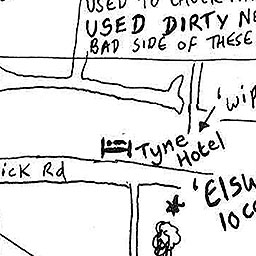 USED DIRTY NE
BAD SIDE OF THESE
'wip
Tyne
Hotel
ick Rd
'Elsw
loco